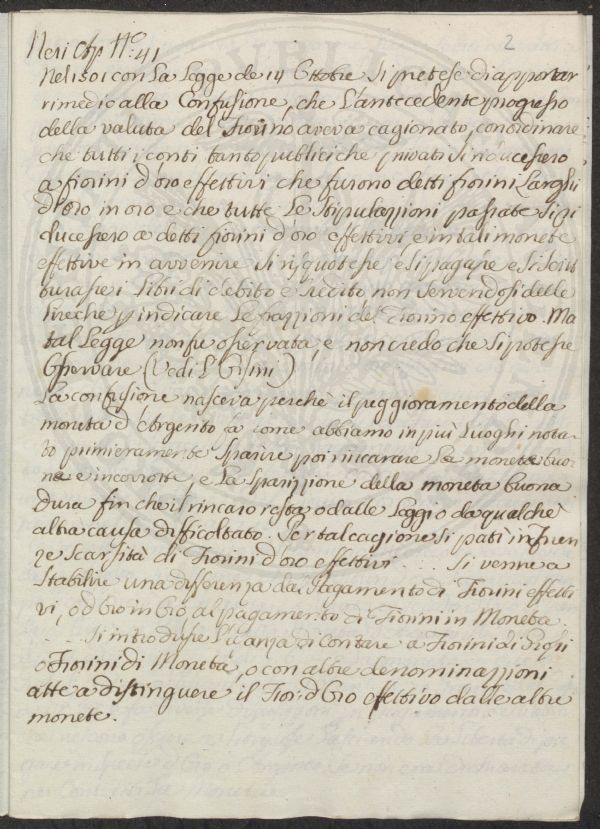 Neri Cap N.º 41
2
Nel 1501 con La Legge de 14 Ottobre si pretese di apportar
rimedio alla Confusione, che L'antecedente progresso
della valuta del Fiorino aveva cagionato, con ordinare
che tutti i conti tanto publici che privati si riducessero
a fiorini d'oro effettivi che furono detti fiorini Larghi
d'oro in oro e che tutte Le Stipulazzioni passate si ri
ducessero a detti fiorini d'oro effettivi e in tali monete
effettive in avvenire si risquotesse e si pagasse e si scrit
turasse i Libri di debito e Credito non servendosi delle
lire che p indicare Le frazzioni del Fiorino effettivo. Ma
tal Legge non fu osservata, e non credo che si potesse
Osservare (Vedi L'Orsini)
La confusione nasceva perchè il peggioramento della
moneta d'Argento à come abbiamo in più Luoghi nota-
to primieramente sparire poi rincarare La moneta buo-
na e incorrotta, e La sparizzione della moneta buona
dura fin che il rincaro resta o dalle Leggi o da qualche
altra causa difficoltato. Per tal cagione si patì in Firen
ze scarsità di Fiorini d'oro effettivi .... Si venne a
stabilire una differenza dal Pagamento di Fiorini effetti
vi, o d'Oro in Oro, al pagamento di Fiorini in Moneta.
.... Si introdusse L'usanza di contare a Fiorini di
o Fiorini di Moneta, o con altre denominazzioni
atte a distinguere il Fior: d'Oro effettivo dalle altre
monete.